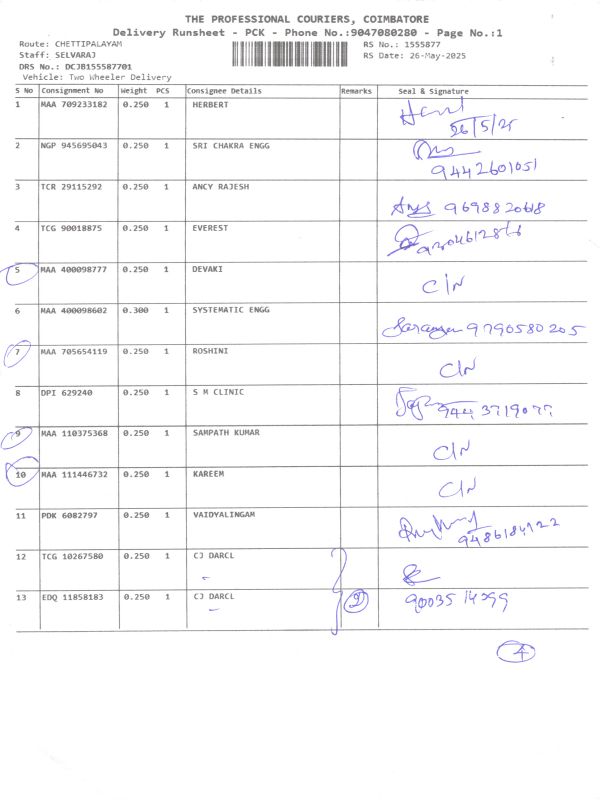 THE PROFESSIONAL COURIERS, COIMBATORE
Delivery Runsheet - PCK - Phone No.:9047080280 - Page No.:1
Route: CHETTIPALAYAM RS No.: 1555877
Staff: SELVARAJ RS Date: 26-May-2025
DRS No.: DCJB155587701
Vehicle: Two Wheeler Delivery
S No Consignment No Weight PCS Consignee Details Remarks Seal & Signature
1 MAA 709233182 0.250 1 HERBERT
26/5/25
2 NGP 945695043 0.250 1 SRI CHAKRA ENGG
9442601051
3 TCR 29115292 0.250 1 ANCY RAJESH
9698820618
4 TCG 90018875 0.250 1 EVEREST
5 MAA 400098777 0.250 1 DEVAKI
C/N
6 MAA 400098602 0.300 1 SYSTEMATIC ENGG
9790580205
7 MAA 705654119 0.250 1 ROSHINI
C/N
8 DPI 629240 0.250 1 S M CLINIC
9 MAA 110375368 0.250 1 SAMPATH KUMAR
C/N
10 MAA 111446732 0.250 1 KAREEM
C/N
11 PDK 6082797 0.250 1 VAIDYALINGAM
12 TCG 10267580 0.250 1 CJ DARCL
13 EDQ 11858183 0.250 1 CJ DARCL 2
4